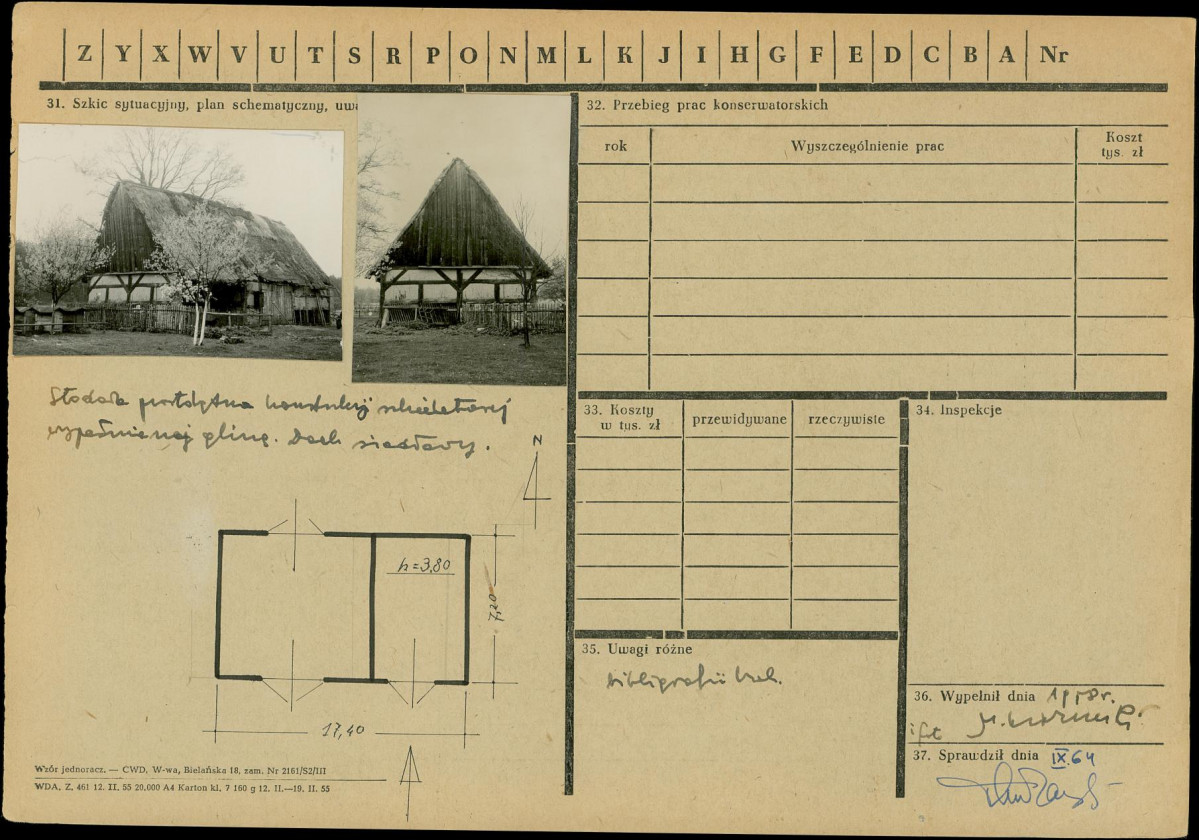 Z Y X W V U T S R P O N M L K J I H G F E D C B A Nr
31. Szkic sytuacyjny, plan schematyczny, uwa
Stodoła konstrukcji szkieletowej
wypełnionej gliną. Dach siodłowy.
N
h=3,80
7,20
17,40
Wzór jednoracz. — CWD, W-wa, Bielańska 18, zam. Nr 2161/S2/III
WDA. Z. 461 12. II. 55 20.000 A4 Karton kl. 7 160 g 12. II.—19. II. 55
32. Przebieg prac konserwatorskich
rok
Wyszczególnienie prac
Koszt
tys. zł
33. Koszty
w tys. zł
przewidywane
rzeczywiste
34. Inspekcje
35. Uwagi różne
bibliografii brak.
36. Wypełnił dnia 1958r.
37. Sprawdził dnia IX.64